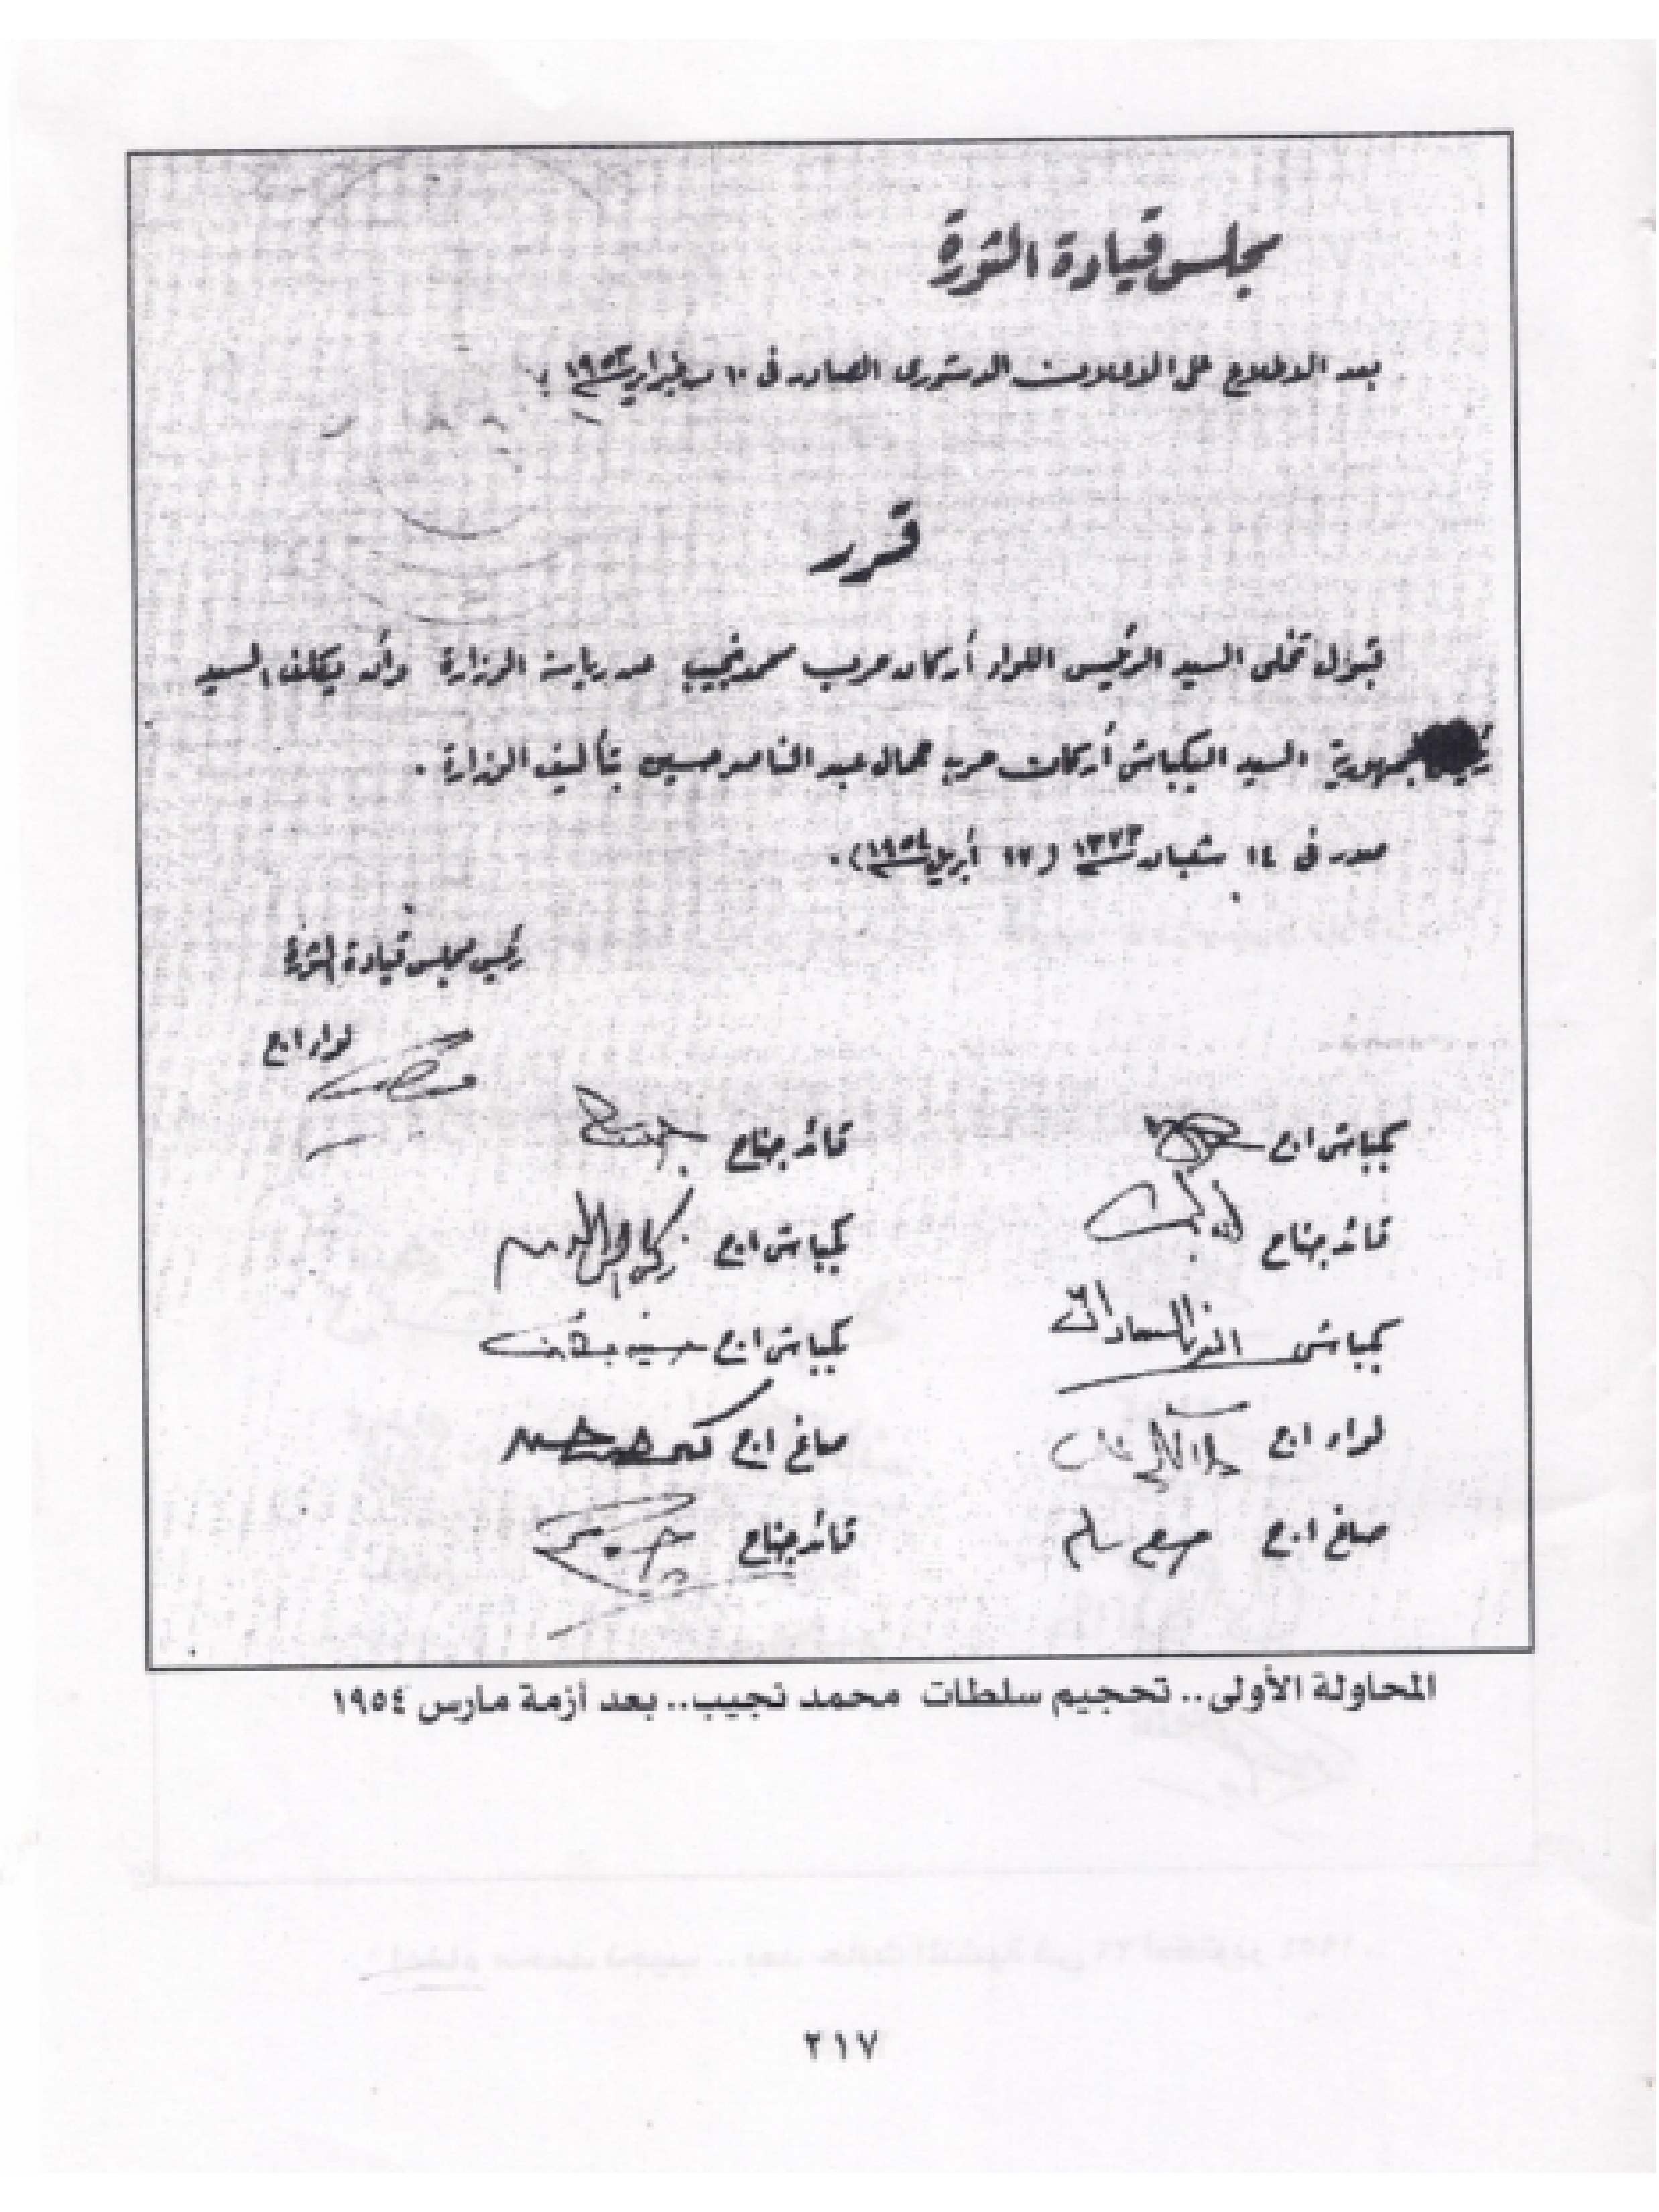 مجلس قيادة الثورة
بعد الاطلاع على الاعلان الدستورى الصادر فى ١٠ من فبراير ١٩٥٣ ؛
قرر
قبول تخلى السيد الرئيس اللواء أركان حرب محمد نجيب عن رياسة الوزارة وأن يكلف السيد
رئيس الجمهورية السيد البكباشى أركان حرب جمال عبد الناصر حسين بتأليف الوزارة .
صدر فى ١٤ شعبان ١٣٧٣ (١٧ أبريل ١٩٥٤) .
رئيس مجلس قيادة الثورة
لواء ا٠ح
بكباشى ا٠ح
قائد جناح
قائد جناح
بكباشى ا٠ح زكريا محى الدين
بكباشى انور السادات
بكباشى ا٠ح
لواء ا٠ح
صاغ ا٠ح
صاغ ا٠ح صلاح سالم
قائد جناح
المحاولة الأولى.. تحجيم سلطات محمد نجيب.. بعد أزمة مارس ١٩٥٤
٢١٧